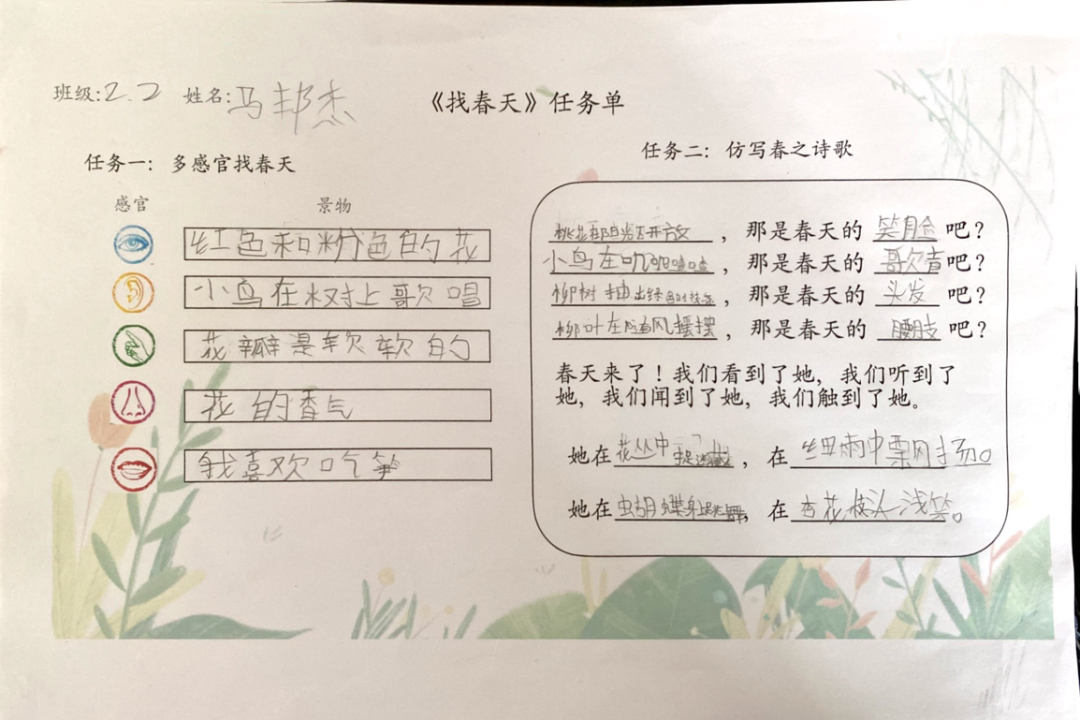 班级:2.2 姓名:马邦杰
《找春天》任务单
任务一：多感官找春天
感官 景物
红色和粉色的花
小鸟在树上歌唱
花瓣是软软的
花的香气
我喜欢吃笋
任务二：仿写春之诗歌
桃花朝阳光开放，那是春天的 笑脸 吧？
小鸟在叽叽喳喳，那是春天的 歌声 吧？
柳树抽出绿色的枝条，那是春天的 头发 吧？
柳叶在随风摇摆，那是春天的 腰肢 吧？
春天来了！我们看到了她，我们听到了
她，我们闻到了她，我们触到了她。
她在花丛中捉迷藏，在细雨中飘扬。
她在蝴蝶身上跳舞，在杏花枝头浅笑。